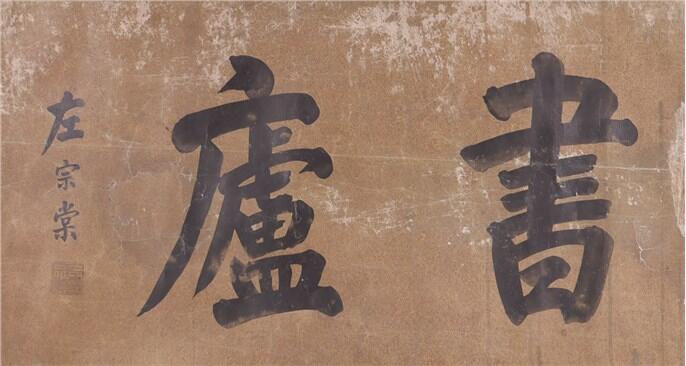 書廬
左宗棠